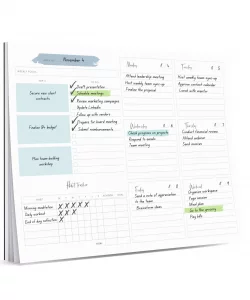 November 4
Secure new client
contracts
Finalize Q4 budget
Plan team-building
workshop
Draft presentation
Schedule meetings
Review marketing campaigns
Update LinkedIn
Follow up with vendors
Prepare for board meeting
Submit reimbursements
Monday
Attend leadership meeting
Host weekly team sync-up
Finalize the proposal
Tuesday
Host weekly team sync-up
Approve content calendar
Lunch with mentor
Wednesday
Check progress on projects
Respond to emails
Team meeting
Thursday
Conduct financial review
Attend webinar
Send invoices
Habit Tracker
Morning meditation
Daily workout
End of day reflection
Friday
Send a note of appreciation
to the team
Brainstorm ideas
Weekend
Organize workspace
Yoga session
Meal plan
Go to the grocery
Pay bills